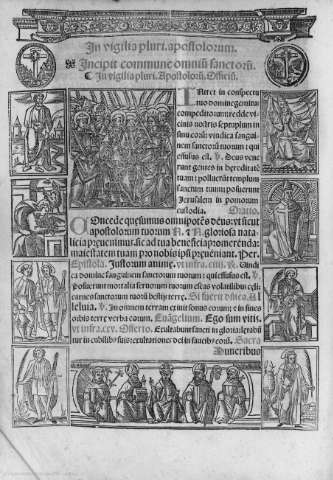 In vigilia pluri. apostolorum.
Incipit commune omniũ sanctorũ.
In vigilia pluri. Apostolorũ. Officiũ.
INtret in conspectu
tuo domine gemitus
compeditorum: redde vi-
cinis nostris septuplum in
sinu eorũ: vindica sangui-
nem sanctorũ tuorum: qui
effusus est. V. Deus vene-
runt gentes in hereditatẽ
tuam: polluerũt templum
sanctum tuum: posuerunt
Jerusalem in pomorum
custodia. Oratio.
COncede quesumus omnipotẽs deus: vt sicut
apostolorum tuorum N. & N. gloriosa nata-
licia preuenimus: sic ad tua beneficia promerẽda:
maiestatem tuam pro nobis ipsi preueniant. Per
Epistola. Justorum anime. vt infra
domine sanguinem sanctorum tuorum: qui effusus est. V.
Posuerunt mortalia seruorum tuorum escas volatilibus celi:
carnes sanctorum tuorũ bestijs terre. Si fuerit
leluia. V. In omnem terram exiuit sonus eorum: et in fines
orbis terre verba eorum. Euãgelium. Ego sum vitis.
vt infra. Offerto. Exultabunt sancti in gloria: letabũ
tur in cubilibus suis: exultationes dei in faucibus eorũ. Secre.
Muneribus